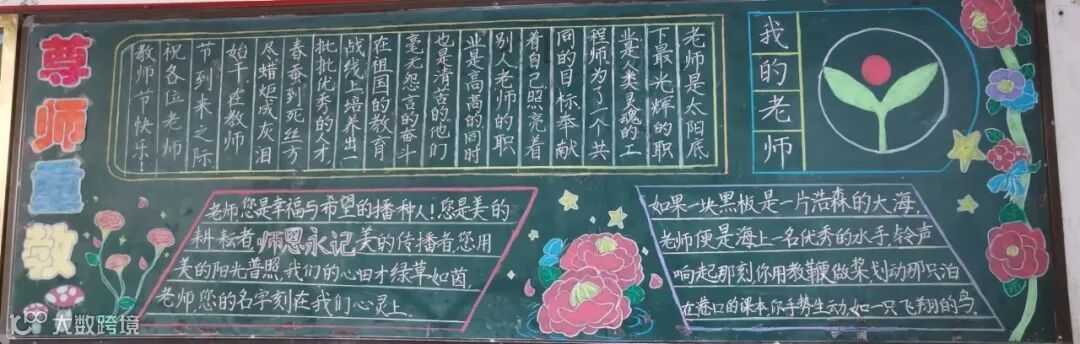 尊师重教
我的老师
老师是太阳底
下最光辉的职
业是人类灵魂的工
程师,为了一个共
同的目标奉献
着自己,照亮着
别人老师的职
业是高高的同时
也是清苦的他们
毫无怨言的奋斗
在祖国的教育
战线上培养出一
批批优秀的人才,
春蚕到死丝方
尽蜡炬成灰泪
始干,在教师
节到来之际
祝各位老师
教师节快乐!
老师您是幸福与希望的播种人!您是美的
耕耘者,师恩永记美的传播者,您用
美的阳光普照,我们的心田才绿草如茵,
老师,您的名字刻在我们心灵上.
如果一块黑板是一片浩森的大海,
老师便是海上一名优秀的水手,铃声
响起那刻,你用教鞭做桨,划动那只泊
在巷口的课本,你手势生动,如一只飞翔的鸟.
大数跨境